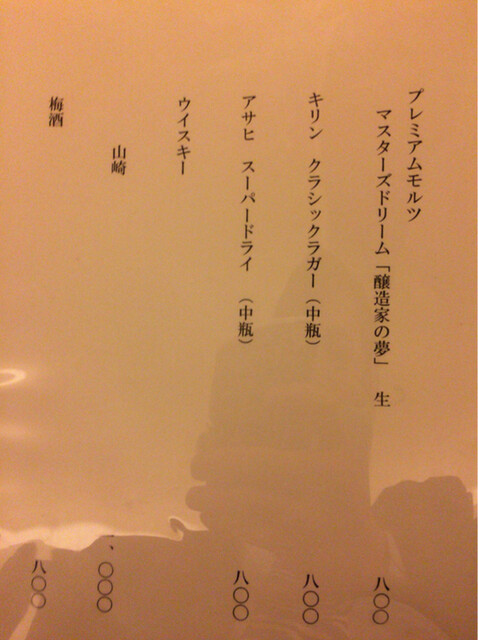 プレミアムモルツ
マスターズドリーム「醸造家の夢」 生 八〇〇
キリン クラシックラガー（中瓶） 八〇〇
アサヒ スーパードライ （中瓶） 八〇〇
ウイスキー
山崎 一、〇〇〇
梅酒 八〇〇